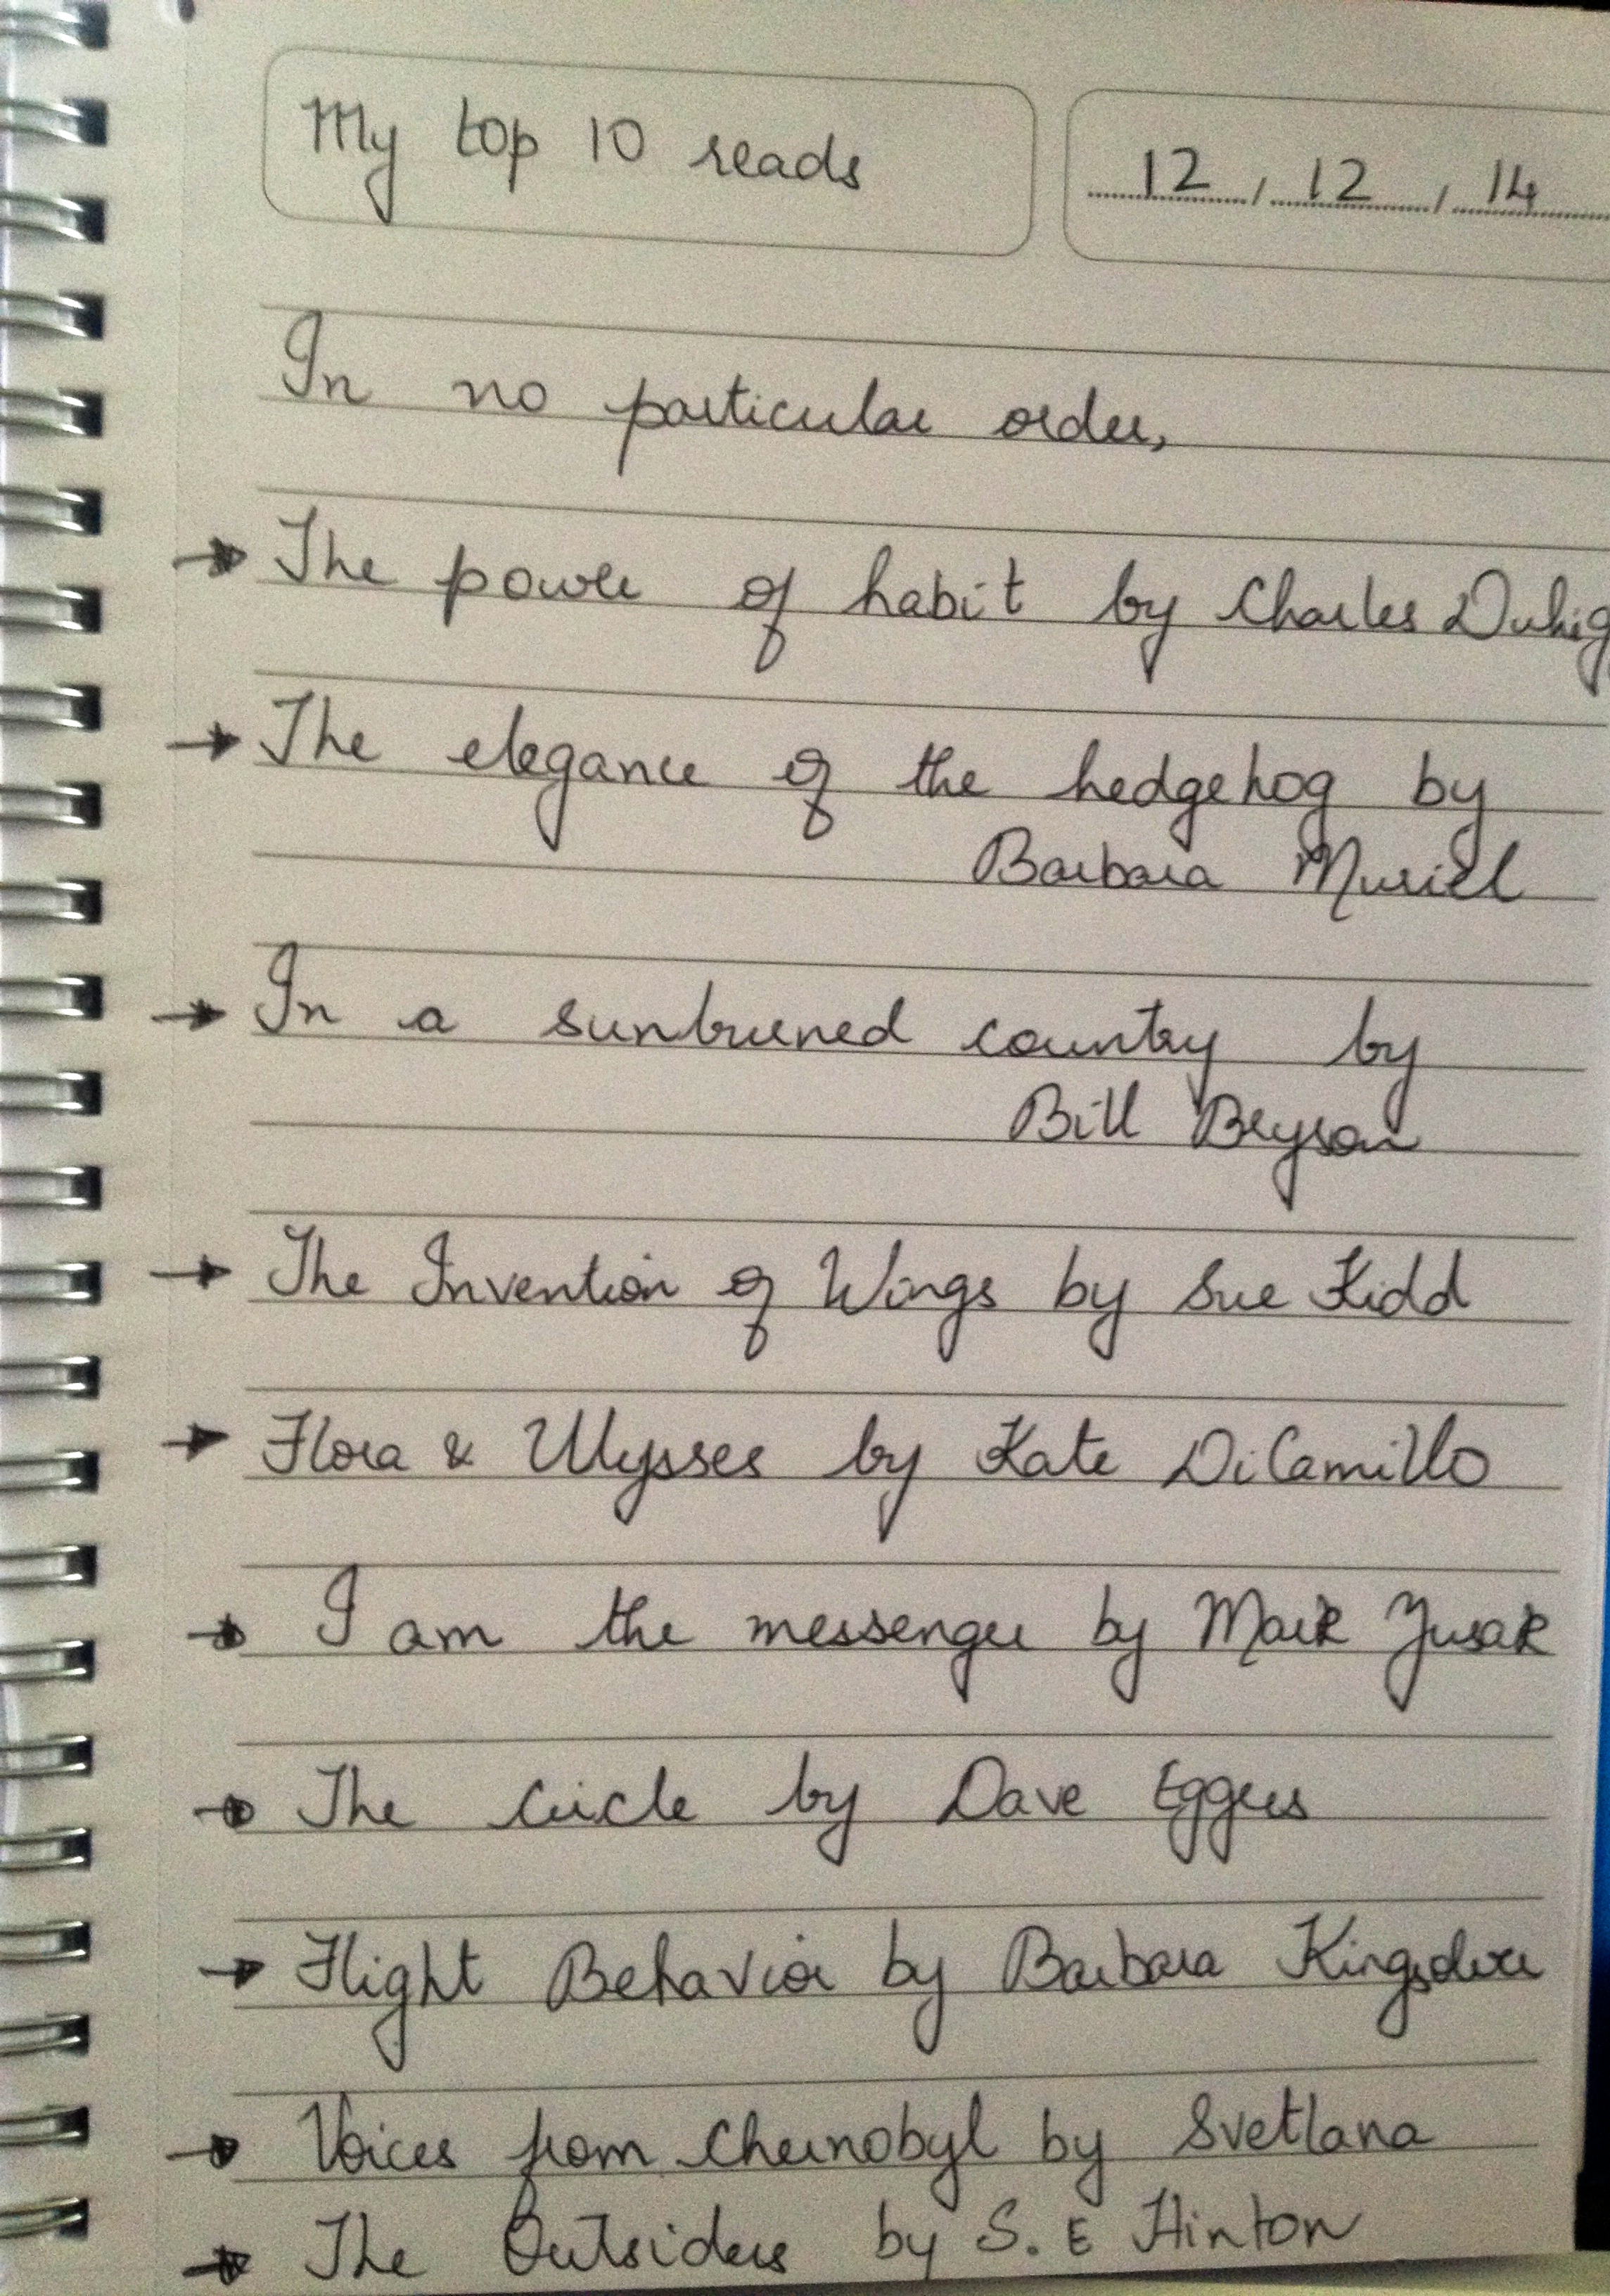 My top 10 reads
12 / 12 / 14
In no particular order,
→ The power of habit by Charles Duhig
→ The elegance of the hedgehog by
Barbara Muriel
→ In a sunburned country by
Bill Bryson
→ The Invention of Wings by Sue Kidd
→ Flora & Ulysses by Kate DiCamillo
→ I am the messenger by Mark Zusak
→ The circle by Dave Eggers
→ Flight Behavior by Barbara Kingsolver
→ Voices from Chernobyl by Svetlana
→ The Outsiders by S. E Hinton